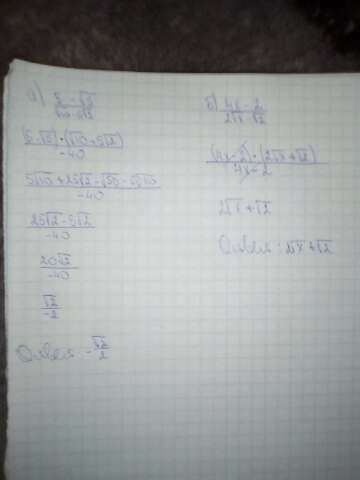 а) (5 - √5)/(√10 - 5√2)
((5-√5)·(√10+5√2))/(-40)
(5√10 + 25√2 - √50 - 5√10)/(-40)
(25√2 - 5√2)/(-40)
(20√2)/(-40)
(√2)/(-2)
Ответ -(√2)/2
б) (4x - 2)/(2√x - √2)
((4x-2)·(2√x+√2))/(4x-2)
2√x + √2
Ответ: 2√x + √2